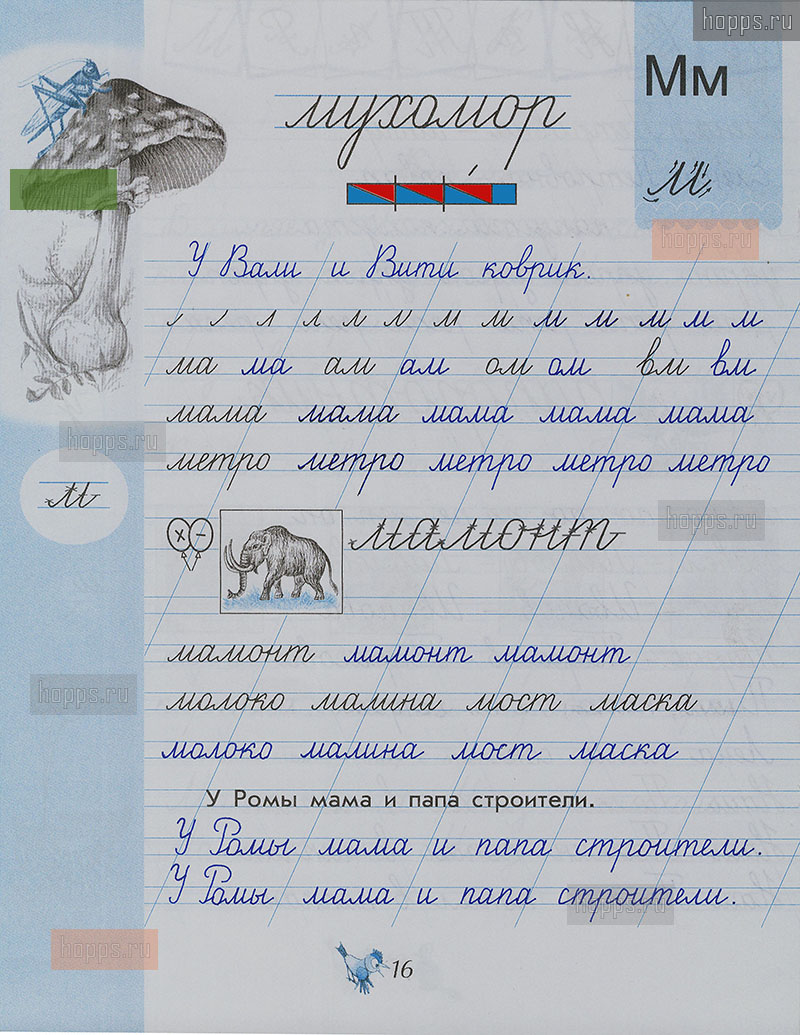 hopps.ru
Мм
мухомор
м
hopps.ru
У Вали и Вити коврик.
м м м м м м
ма ма ам ам ом ом вм вм
hopps.ru
мама мама мама мама мама
метро метро метро метро метро
м
hopps.ru
× -
мамонт
мамонт мамонт мамонт
hopps.ru
молоко малина мост маска
молоко малина мост маска
У Ромы мама и папа строители.
У Ромы мама и папа строители.
У Ромы мама и папа строители.
hopps.ru
hopps.ru
16